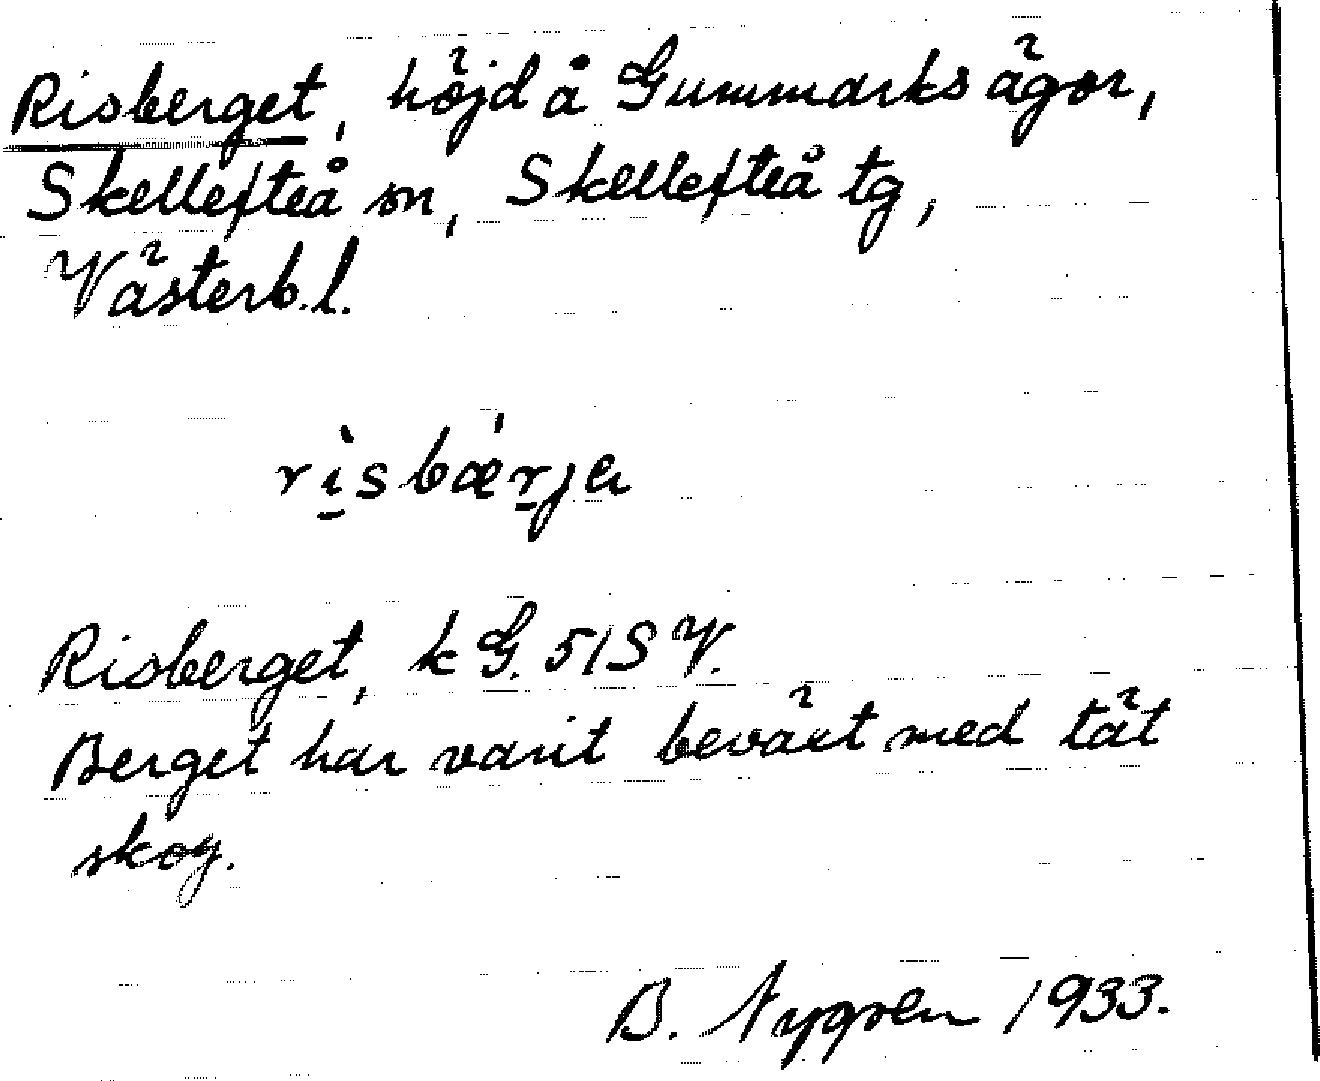 Risberget, höjd å Gummarks ägor,
Skellefteå sn, Skellefteå tg,
Västerb.l.
rìsbæ̀rja
Risberget, k G. 51SV.
Berget har varit beväxt med tät
skog.
B. Nygren 1933.